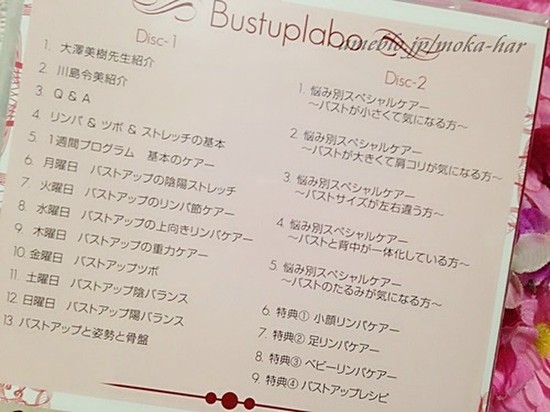 Bustuplabo
ameblo.jp/moka-har
Disc-1
1. 大澤美樹先生紹介
2. 川島令美紹介
3. Q & A
4. リンパ & ツボ & ストレッチの基本
5. 1週間プログラム 基本のケアー
6. 月曜日 バストアップの陰陽ストレッチ
7. 火曜日 バストアップのリンパ節ケアー
8. 水曜日 バストアップの上向きリンパケアー
9. 木曜日 バストアップの重力ケアー
10. 金曜日 バストアップツボ
11. 土曜日 バストアップ陰バランス
12. 日曜日 バストアップ陽バランス
13. バストアップと姿勢と骨盤
Disc-2
1. 悩み別スペシャルケアー
～バストが小さくて気になる方～
2. 悩み別スペシャルケアー
～バストが大きくて肩コリが気になる方～
3. 悩み別スペシャルケアー
～バストサイズが左右違う方～
4. 悩み別スペシャルケアー
～バストと背中が一体化している方～
5. 悩み別スペシャルケアー
～バストのたるみが気になる方～
6. 特典① 小顔リンパケアー
7. 特典② 足リンパケアー
8. 特典③ ベビーリンパケアー
9. 特典④ バストアップレシピ